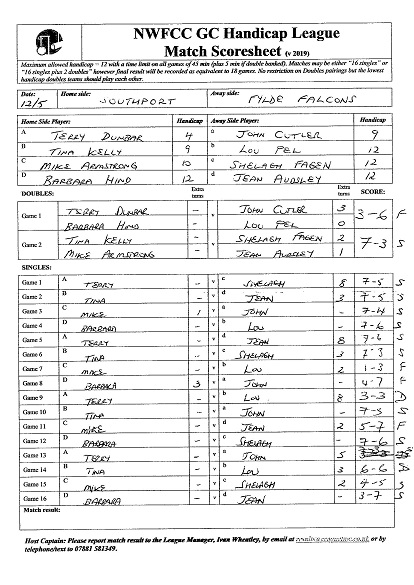 NWFCC GC Handicap League
Match Scoresheet (v 2019)
Maximum allowed handicap = 12 with a time limit on all games of 45 min (plus 5 min if double banked). Matches may be either "16 singles" or
"16 singles plus 2 doubles" however final result will be recorded as equivalent to 18 games. No restriction on Doubles pairings but the lowest
handicap doubles teams should play each other.
Date: 12/5 Home side: SOUTHPORT Away side: FYLDE FALCONS
Home Side Player: Handicap Away Side Player: Handicap
A TERRY DUNBAR 4 a JOHN CUTLER 9
B TINA KELLY 9 b LOU PEL 12
C MIKE ARMSTRONG 10 c SHELAGH FAGEN 12
D BARBARA HIND 12 d JEAN AUDSLEY 12
DOUBLES: Extra turns Extra turns SCORE:
Game 1 TERRY DUNBAR - v JOHN CUTLER 3 3-6 F
BARBARA HIND - LOU PEL 0
Game 2 TINA KELLY - v SHELAGH FAGEN 2 7-3 S
MIKE ARMSTRONG - JEAN AUDSLEY 1
SINGLES:
Game 1 A TERRY - v c SHELAGH 8 7-5 S
Game 2 B TINA - v d JEAN 3 7-5 S
Game 3 C MIKE 1 v a JOHN - 7-4 S
Game 4 D BARBARA - v b LOU - 7-6 S
Game 5 A TERRY - v d JEAN 8 7-6 S
Game 6 B TINA - v c SHELAGH 3 7-3 S
Game 7 C MIKE - v b LOU 2 1-3 F
Game 8 D BARBARA 3 v a JOHN - 4-7 F
Game 9 A TERRY - v b LOU 8 3-3 D
Game 10 B TINA - v a JOHN - 7-5 S
Game 11 C MIKE - v d JEAN 2 5-7 F
Game 12 D BARBARA - v c SHELAGH - 7-6 S
Game 13 A TERRY - v a JOHN 5
Game 14 B TINA - v b LOU 3 6-6 D
Game 15 C MIKE - v c SHELAGH 2 4-5 S
Game 16 D BARBARA - v d JEAN - 3-7 S
Match result:
Host Captain: Please report match result to the League Manager, Ivan Wheatley, by email at or by
telephone/text to 07881 581349.